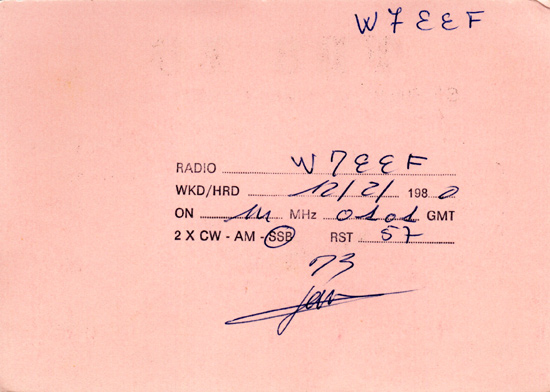 W7EEF
RADIO W7EEF
WKD/HRD 12/2/ 1980
ON 14 MHz 0101 GMT
2 X CW - AM - SSB RST 57
73